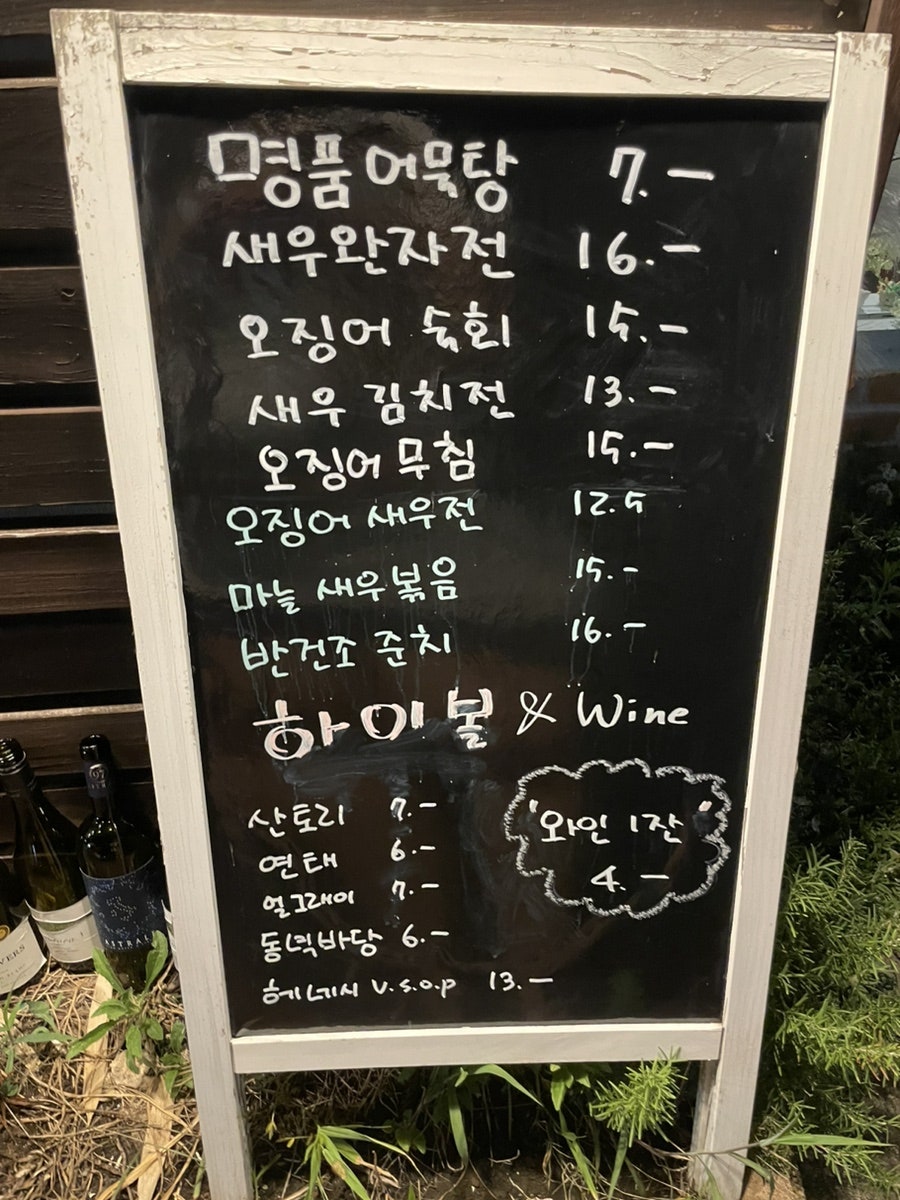 명품 어묵탕 7.-
새우완자전 16.-
오징어 숙회 15.-
새우 김치전 13.-
오징어 무침 15.-
오징어 새우전 12.5
마늘 새우볶음 15.-
반건조 준치 16.-
하이볼 & Wine
산토리 7.-
연태 6.-
얼그레이 7.-
동녘바당 6.-
헤네시 V.S.O.P 13.-
"와인 1잔"
4.-
ASTRAL